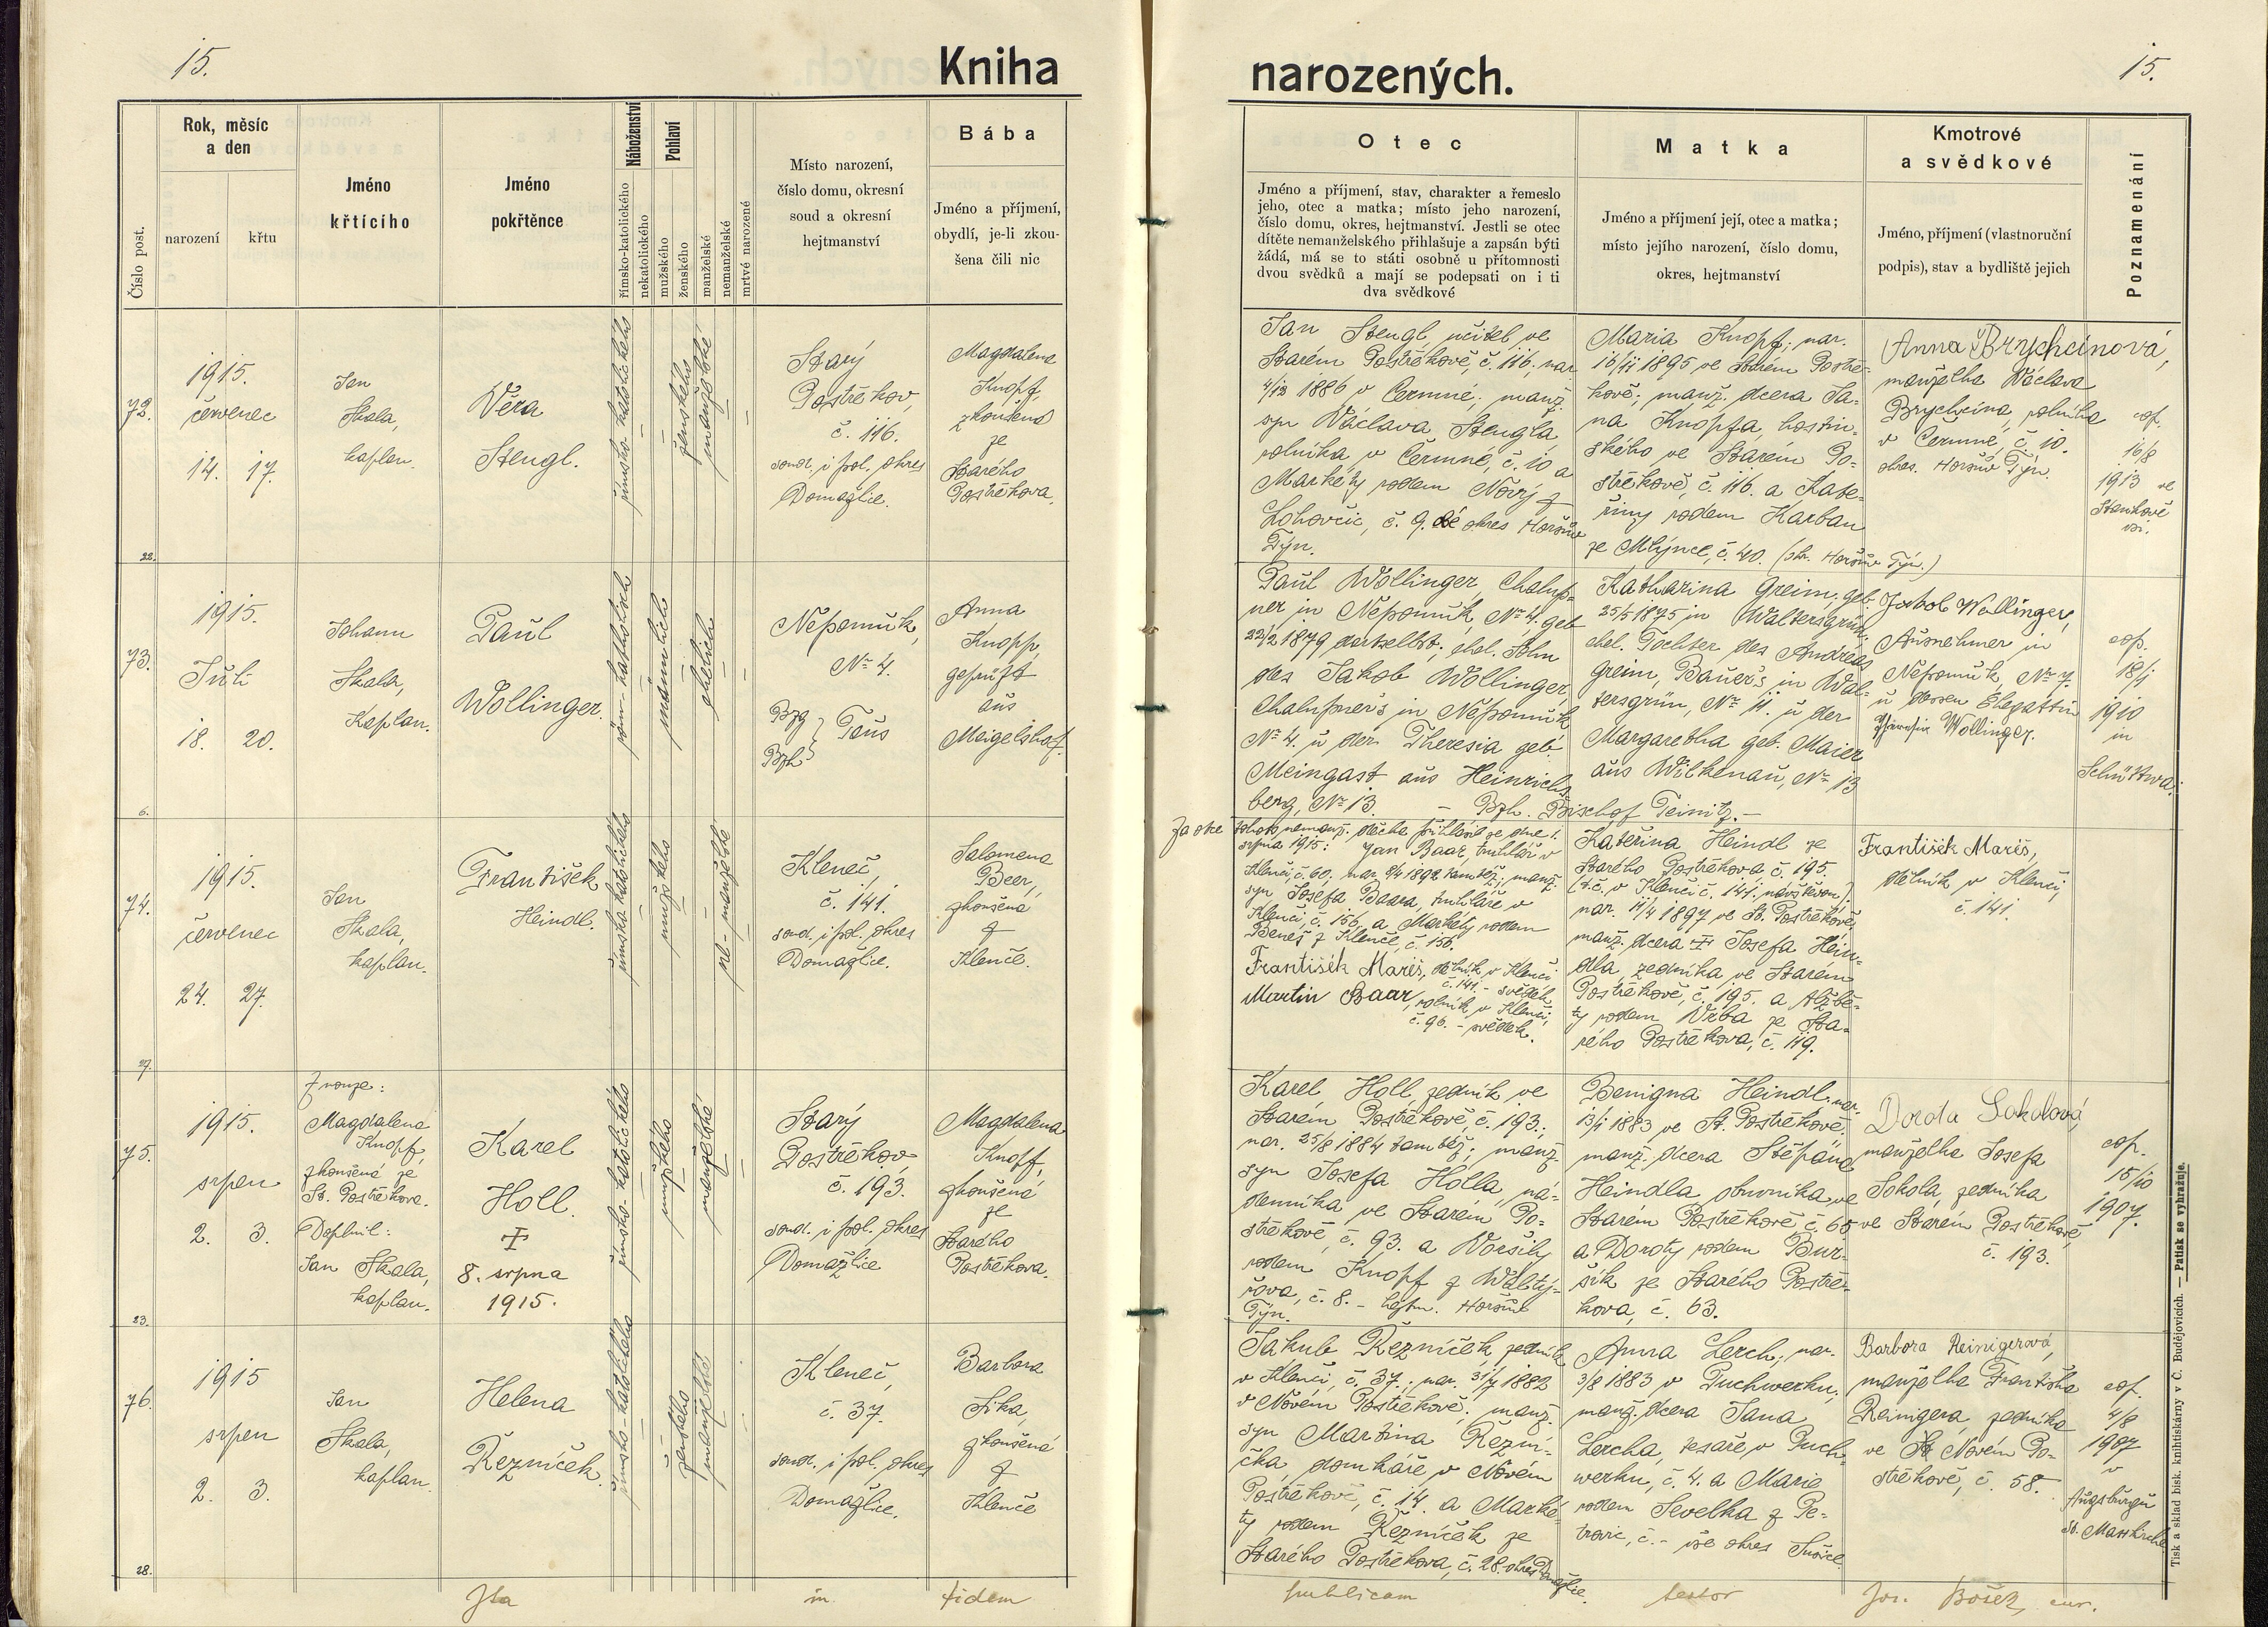 15.
Kniha
narozených.
15.
Rok, měsíc
a den
narození
křtu
Číslo post.
Jméno
křtícího
Jméno
pokřtěnce
Náboženství
římsko-katolického
nekatolického
Pohlaví
mužského
ženského
manželské
nemanželské
mrtvé narozené
Místo narození,
číslo domu, okresní
soud a okresní
hejtmanství
Bába
Jméno a příjmení,
obydlí, je-li zkou-
šena čili nic
Otec
Jméno a příjmení, stav, charakter a řemeslo
jeho, otec a matka; místo jeho narození,
číslo domu, okres, hejtmanství. Jestli se otec
dítěte nemanželského přihlašuje a zapsán býti
žádá, má se to státi osobně u přítomnosti
dvou svědků a mají se podepsati on i ti
dva svědkové
Matka
Jméno a příjmení její, otec a matka;
místo jejího narození, číslo domu,
okres, hejtmanství
Kmotrové
a svědkové
Jméno, příjmení (vlastnoruční
podpis), stav a bydliště jejich
Poznamenání
72.
1915.
červenec
14. 17.
22.
Jan
Skala,
kaplan.
Věra
Stengl.
římsko-katolického
ženského
manželské
Starý
Postřekov,
č. 116.
soud. i pol. okres
Domažlice.
Magdalena
Knopf,
zkoušená
ze
Starého
Postřekova.
Jan Stengl, učitel ve
Starém Postřekově, č. 116; nar.
4/12 1886 v Čermné; manž.
syn Václava Stengla,
rolníka v Čermné, č. 10 a
Markéty rodem Nový z
Lohovčic, č. 9. okres Horšův
Týn.
Maria Knopf; nar.
16/11 1895 ve Starém Postře-
kově; manž. dcera Ja-
na Knopfa, hostin-
ského ve Starém Po-
střekově, č. 116. a Kate-
řiny rodem Karban
ze Mlýnce, č. 40. (okr. Horšův Týn.)
Anna Brychcínová,
manželka Václava
Brychcína, rolníka
v Čermné, č. 10.
okres. Horšův Týn.
cop.
16/8
1913 ve
Stankově
vsi.
73.
1915.
Juli
18. 20.
6.
Johann
Skala,
Kaplan.
Paul
Wollinger.
röm-katholisch
männlich
ehelich
Nepomuk,
No 4.
Bzg
Bzh } Taus
Anna
Knopp,
geprüft
aus
Meigelshof.
Paul Wollinger, Chalup-
ner in Nepomuk, No 4. geb
22/2 1879 dortselbst; ehel. Sohn
des Jakob Wollinger,
Chalupners in Nepomuk
No 4. u der Theresia geb.
Meingast aus Heinrichs-
berg, No 13. – Bzh. Bischof Teinitz. –
Katharina Greim, geb.
25/5 1875 in Waltersgrün,
ehel. Tochter des Andreas
Greim, Bauers in Wal-
tersgrün, No 11. u der
Margaretha geb. Maier
aus Wilkenau, No 13
Jakob Wollinger,
Ausnehmer in
Nepomuk, No 7.
u dessen Ehegattin
Theresia Wollinger.
cop.
18/1
1910
in
Schüttwa.
74.
1915.
červenec
24. 27.
27.
Jan
Skala,
kaplan.
František
Heindl.
římsko-katolického
mužského
ne-manželské
Kleneč,
č. 141.
soud. i pol. okres
Domažlice.
Salomena
Beer,
zkoušená
z
Klenče.
Za otce tohoto nemanž. děcka přihlásil se dne 1.
srpna 1915: Jan Baar, truhlář v
Klenči, č. 60. nar. 8/4 1892 tamtéž; manž.
syn Josefa Baara, truhláře v
Klenči, č. 156. a Markéty rodem
Beneš z Klenče, č. 156.
František Mareš, dělník v Klenči
č. 141. – svědek
Martin Baar, rolník v Klenči,
č. 96. – svědek.
Kateřina Heindl ze
Starého Postřekova, č. 195.
(t. č. v Klenči č. 141. návštěvou)
nar. 11/4 1897 ve St. Postřekově,
manž. dcera + Josefa Hein-
dla, zedníka ve Starém
Postřekově, č. 195. a Alžbě-
ty rodem Vrba ze Sta-
rého Postřekova, č. 119.
František Mareš,
dělník v Klenči,
č. 141.
75.
1915.
srpen
2. 3.
23.
Z nouze:
Magdalena
Knopf,
zkoušená ze
St. Postřekova.
Doplnil:
Jan Skala,
kaplan.
Karel
Holl.
+
8. srpna
1915.
římsko-katolického
mužského
manželské
Starý
Postřekov
č. 193.
soud. i pol. okres
Domažlice
Magdalena
Knopf,
zkoušená
ze
Starého
Postřekova.
Karel Holl, zedník ve
Starém Postřekově, č. 193.;
nar. 25/8 1884 tamtéž; manž.
syn Josefa Holla, ná-
denníka ve Starém Po-
střekově, č. 93. a Voršily
rodem Knopf z Waltý-
řova, č. 8. – hejtm. Horšův
Týn.
Benigna Heindl, nar.
13/1 1883 ve St. Postřekově;
manž. dcera Štěpána
Heindla, obuvníka ve
Starém Postřekově č. 65
a Doroty rodem Bur-
šík ze Starého Postře-
kova, č. 63.
Dorda Sokolová,
manželka Josefa
Sokola, zedníka
ve Starém Postřekově,
č. 193.
cop.
15/10
1907.
76.
1915
srpen
2. 3.
28.
Jan
Skala,
kaplan.
Helena
Řezníček.
římsko-katolického
ženského
manželské
Kleneč,
č. 37.
soud. i pol. okres
Domažlice.
Barbora
Sika,
zkoušená
z
Klenče
Jakub Řezníček, zedník
v Klenči, č. 37.; nar. 31/7 1882
v Novém Postřekově; manž.
syn Martina Řezní-
čka, domkáře v Novém
Postřekově, č. 14. a Marké-
ty rodem Řezníček ze
Starého Postřekova, č. 28. okres Domažlice.
Anna Lerch; nar.
3/8 1883 v Puchwerku;
manž. dcera Jana
Lercha, tesaře v Puch-
werku, č. 4. a Marie
rodem Sevelka z Pe-
trovic, č. – vše okres Sušice
Barbora Reinigerová,
manželka Františka
Reinigera, zedníka
ve St Novém Po-
střekově, č. 58.
cop.
4/8
1907
v
Augsburgu
St. Maxkirche
Ita in fidem publicam testor Jos. Bošek, cur.
Tisk a sklad bisk. knihtiskárny v Č. Budějovicích. — Patisk se vyhražuje.